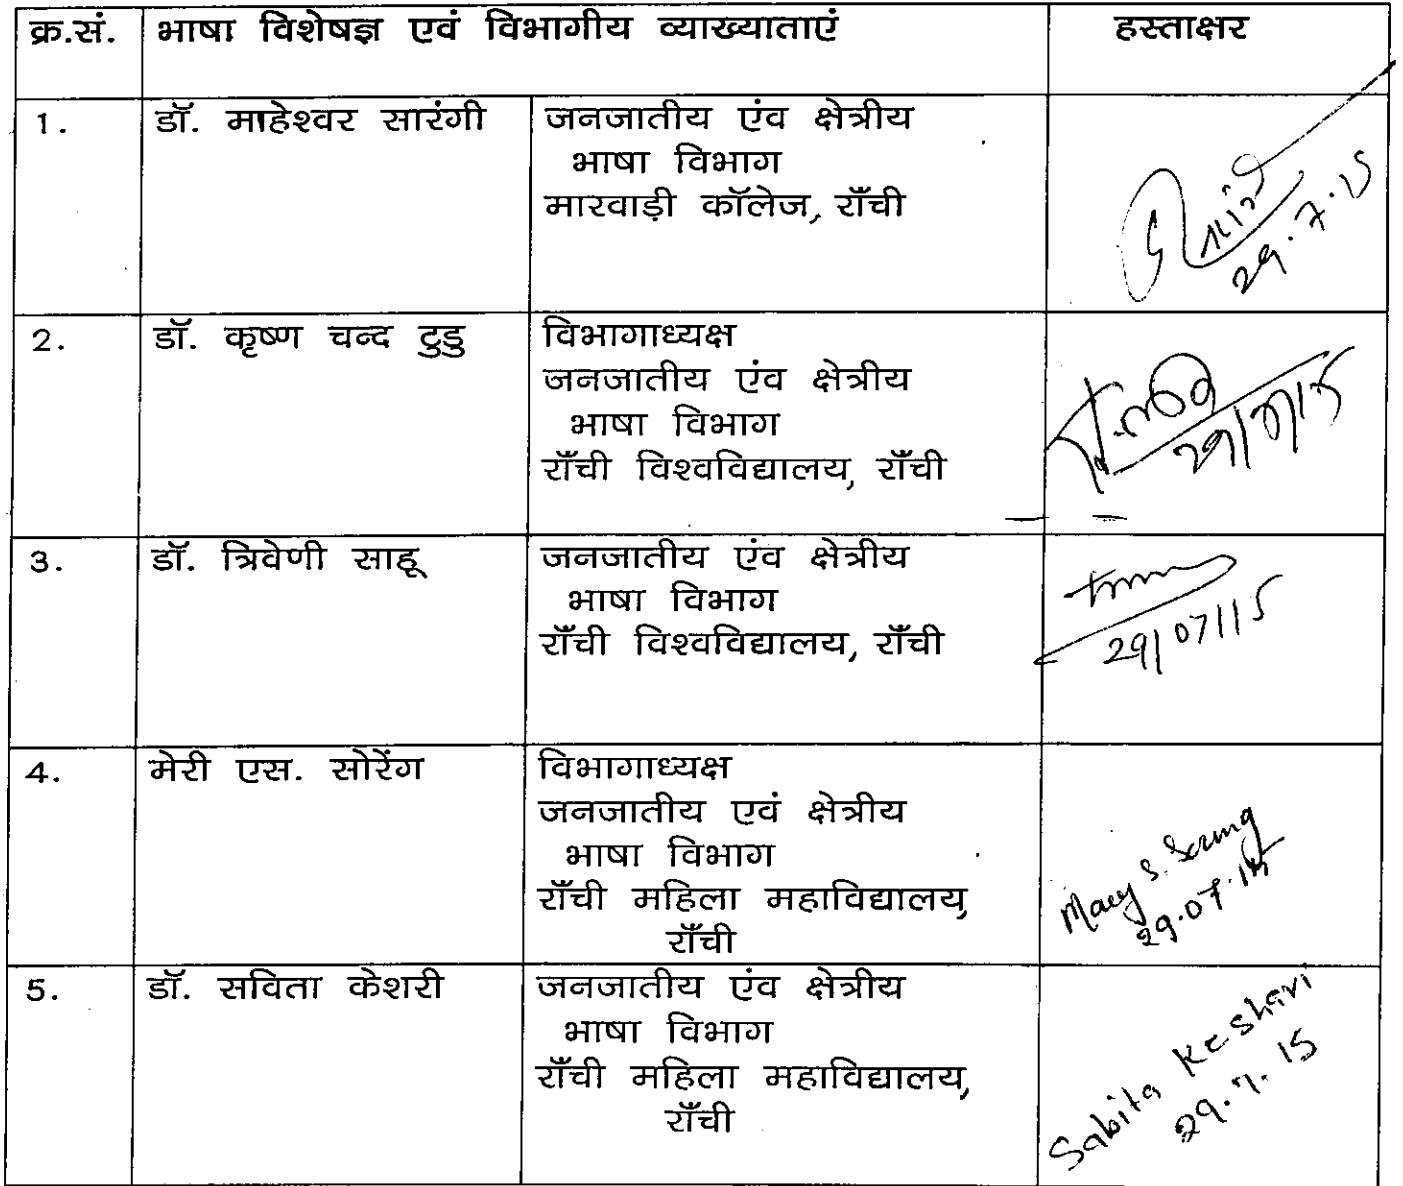 क्र.सं. भाषा विशेषज्ञ एवं विभागीय व्याख्याताएं हस्ताक्षर
1. डॉ. माहेश्वर सारंगी जनजातीय एंव क्षेत्रीय
भाषा विभाग
मारवाड़ी कॉलेज, राँची
29.7.15
2. डॉ. कृष्ण चन्द टुडु विभागाध्यक्ष
जनजातीय एंव क्षेत्रीय
भाषा विभाग
राँची विश्वविद्यालय, राँची
29/07/15
3. डॉ. त्रिवेणी साहू जनजातीय एंव क्षेत्रीय
भाषा विभाग
राँची विश्वविद्यालय, राँची
29/07/15
4. मेरी एस. सोरेंग विभागाध्यक्ष
जनजातीय एवं क्षेत्रीय
भाषा विभाग
राँची महिला महाविद्यालय,
राँची
Mary S.
29.07.15
5. डॉ. सविता केशरी जनजातीय एंव क्षेत्रीय
भाषा विभाग
राँची महिला महाविद्यालय,
राँची
Sabita Keshari
29.7.15